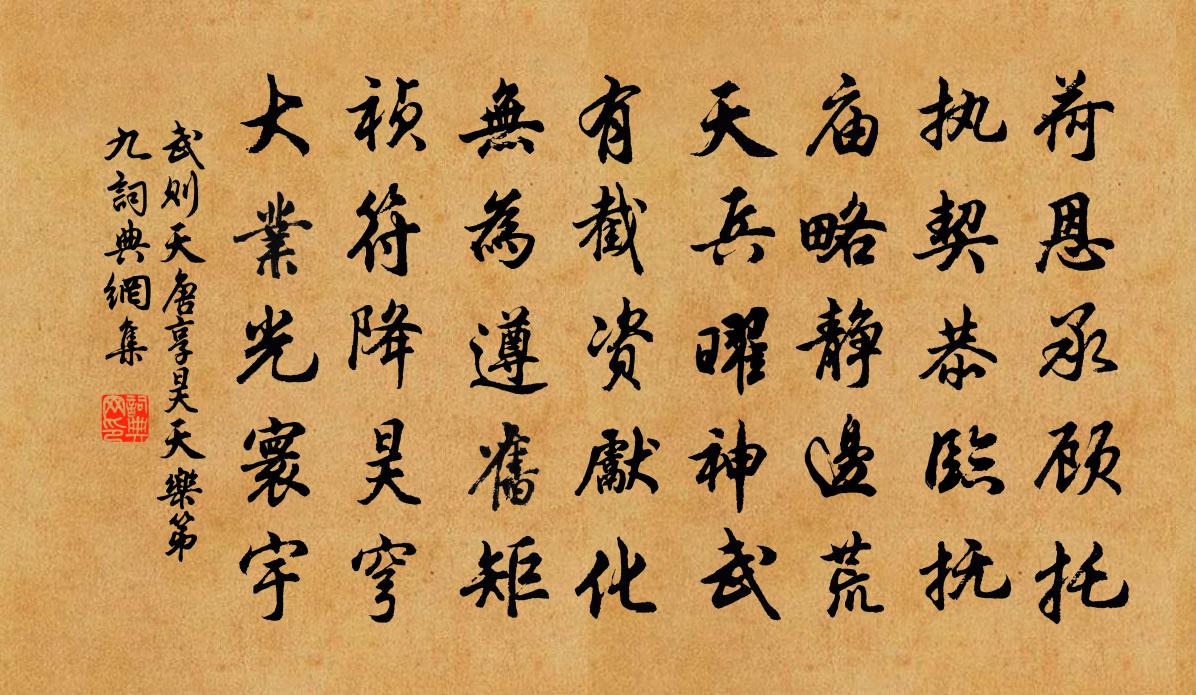 荷恩承顾托
执契恭临抚
庙略静邊荒
天兵曜神武
有截资獻化
無為遵舊矩
祯符降昊穹
大業光寰宇
武则天唐享昊天樂第
九詞典網集
詞典
网印